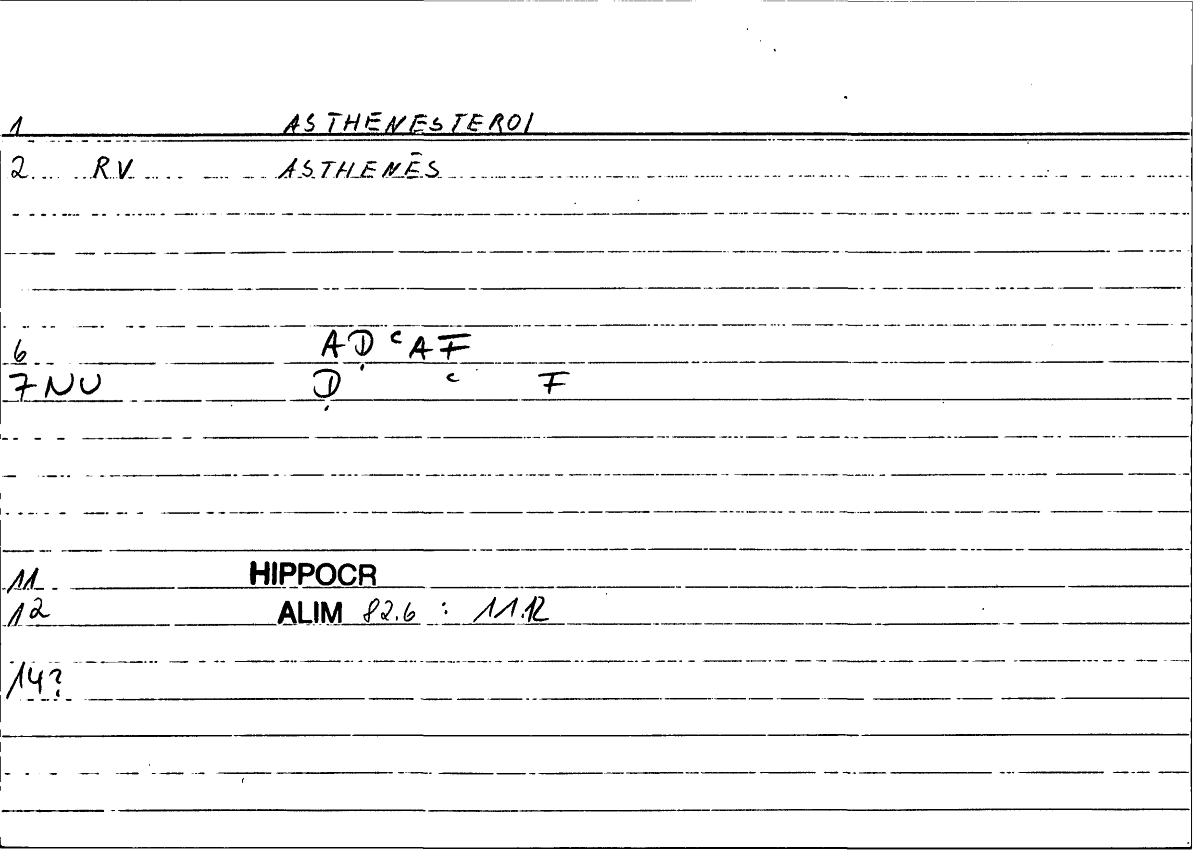 1 ASTHENESTEROI
2 RV ASTHENĒS
6 AḌ ᶜAF̄
7 NU Ḍ ᶜ F
11 HIPPOCR
12 ALIM 82.6 : 11.12
14?